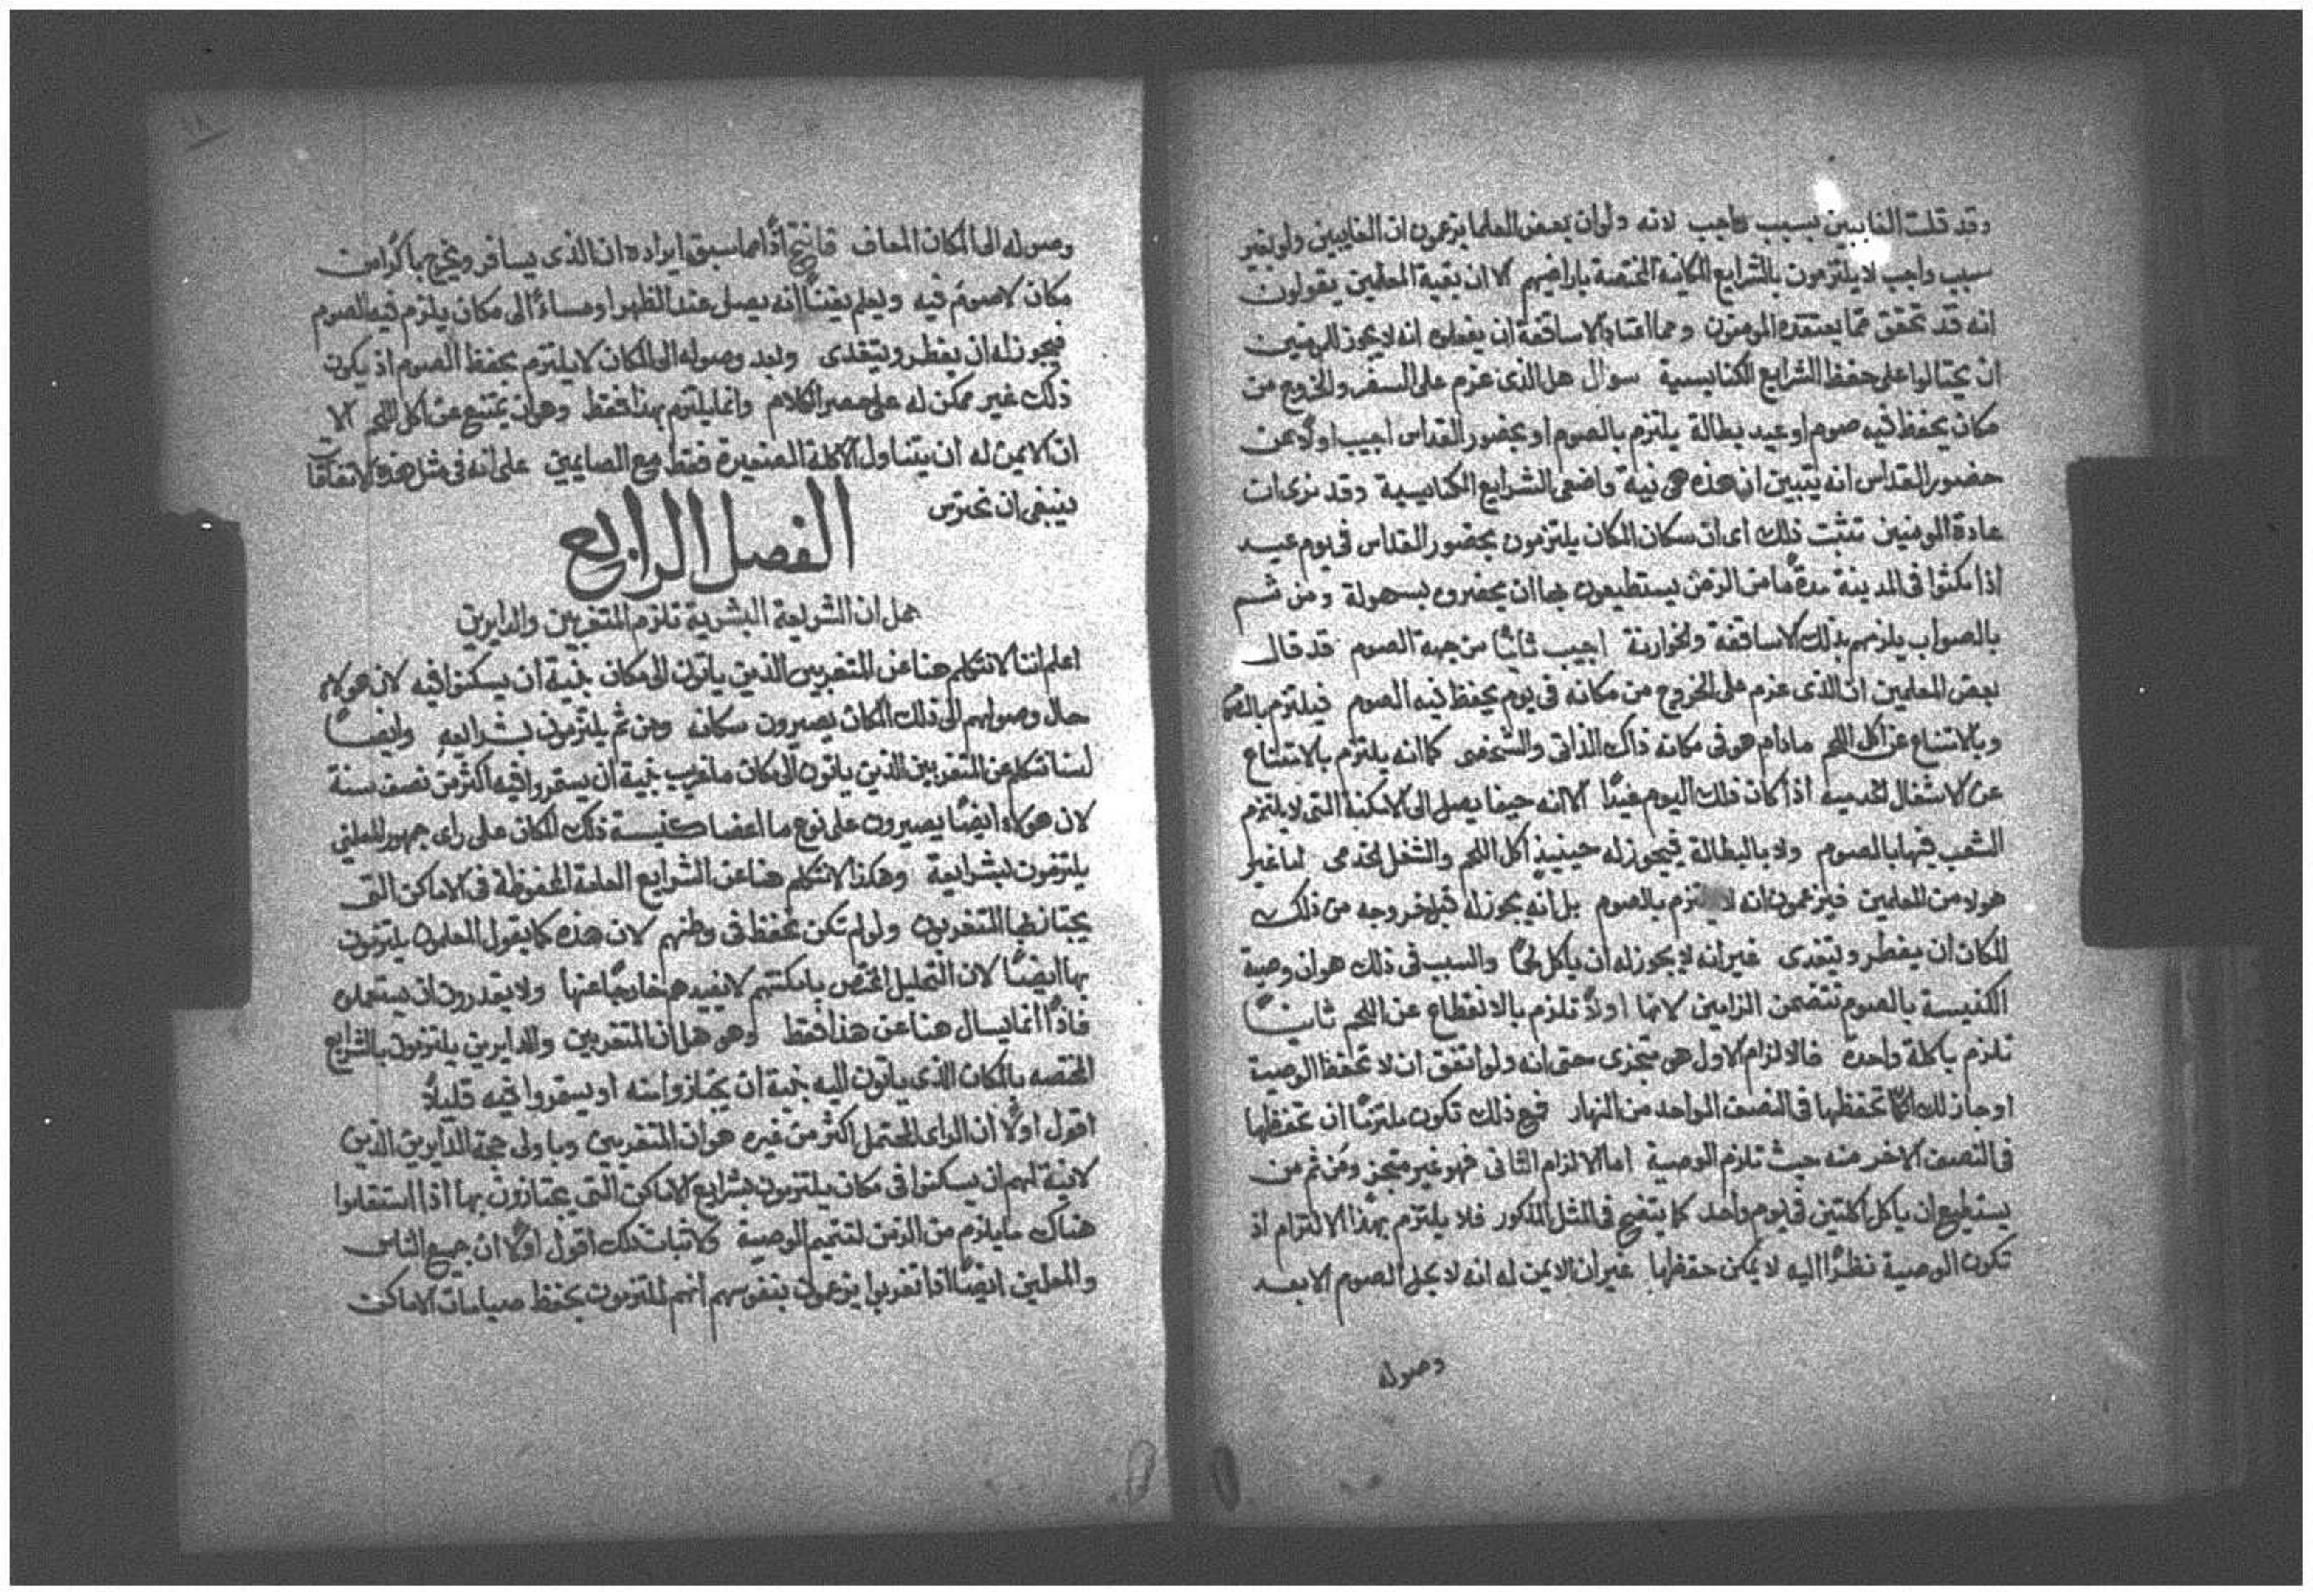 وقد قلت الغايبين بسبب واجب لانه ولوان بعض المعلما يزعمون ان الغايبين ولو بغير
سبب واجب لا يلتزمون بالشرايع المكانية المختصة باراضيهم الا ان بقية المعلمين يقولون
انه قد تحقق مما يعتقده المومنون ومما اعتاد الاساقفة ان يفعلوه انه لا يجوز للمومنين
ان يحتالوا على حفظ الشرايع الكنايسية سوال هل الذى عزم على السفر والخروج من
مكان يحفظ فيه صوم او عيد بطالة يلتزم بالصوم او بحضور القداس اجيب اولًا عن
حضور القداس انه يتبين ان هذه هى نية واضعى الشرايع الكنايسية وقد نرى ان
عادة المومنين تثبت ذلك اى ان سكان المكان يلتزمون بحضور القداس فى يوم عيد
اذا مكثوا فى المدينة مدة ما من الزمن يستطيعون بها ان يحضروه بسهولة ومن ثم
بالصواب يلزمهم بذلك الاساقفة والخوارنة اجيب ثانيًا من جهة الصوم قد قال
بعض المعلمين ان الذى عزم على الخروج من مكانه فى يوم يحفظ فيه الصوم فيلتزم بالصوم
وبالامتناع عن اكل اللحم مادام هو فى مكانه ذاك الذاتى والشخصى كما انه يلتزم بالامتناع
عن الاشغال الخدمية اذا كان ذلك اليوم عيدًا الا انه حينما يصل الى الامكنة التى لا يلتزم
الشعب فيها بالصوم ولا بالبطالة فيجوز له حينيذٍ اكل اللحم والشغل الخدمى اما غير
هولاء من المعلمين فيزعمون انه لا يلتزم بالصوم بل انه يجوز له قبل خروجه من ذلك
المكان ان يفطر ويتغدى غير انه لا يجوز له ان ياكل لحمًا والسبب فى ذلك هو ان وصية
الكنيسة بالصوم تتضمن الزامين لانها اولًا تلزم بالانقطاع عن اللحم ثانيًا
تلزم باكلة واحدة فالالزام الاول هو متجزى حتى انه ولو اتفق ان لا تحفظ الوصية
او جاز لك الا تحفظها فى النصف الواحد من النهار فمع ذلك تكون ملتزمًا ان تحفظها
فى النصف الاخر منه حيث تلزم الوصية اما الالزام الثانى فهو غير متجز ومن ثم من
يستطيع ان ياكل اكلتين فى يوم واحد كما يتضح فى المثل المذكور فلا يلتزم بهذا الالتزام اذ
تكون الوصية نظرًا اليه لا يمكن حفظها غير ان الايمن له انه لا يحل الصوم الا بعد
وصوله
وصوله الى المكان المعاف فانتج اذًا مما سبق ايراده ان الذى يسافر ويخرج باكرًا من
مكان لا صوم فيه ويعلم يقينًا انه يصل عند الظهر او مساءً الى مكان يلتزم فيه الصوم
فيجوز له ان يفطر ويتغدى وبعد وصوله الى المكان لا يلتزم بحفظ الصوم اذ يكون
ذلك غير ممكن له على حصر الكلام وانما يلتزم بهذا فقط وهو ان يمتنع عن اكل اللحم الا
ان الايمن له ان يتناول الاكلة الصغيرة فقط مع الصايمين على انه فى مثل هذه الاتفاقات
ينبغى ان نحترس
الفصل الرابع
هل ان الشريعة البشرية تلزم المتغربين والدايرين
اعلم اننا لا نتكلم هنا عن المتغربين الذين ياتون الى مكان بنية ان يسكنوا فيه لان هولاء
حال وصولهم الى ذلك المكان يصيرون سكانه ومن ثم يلتزمون بشرايعه وايضًا
لسنا نتكلم عن المتغربين الذين ياتون الى مكان ما غريب بنية ان يستقروا فيه اكثر من نصف سنة
لان هولاء ايضًا يصيرون على نوع ما اعضا كنيسة ذلك المكان على راى جمهور المعلمين
يلتزمون بشرايعه وهكذا لا نتكلم هنا عن الشرايع العامة المحفوظة فى الاماكن التى
يجتاز بها المتغربون ولو لم تكن تحفظ فى وطنهم لان هذه كما يقول المعلمون يلتزمون
بها ايضًا لان التحليل المختص بامكنتهم لا يفيدهم خارجًا عنها ولا يقدرون ان يستعملوه
فاذًا انما يسال هنا عن هذا فقط وهو هل ان المتغربين والدايرين يلتزمون بالشرايع
المختصه بالمكان الذى ياتون اليه بنية ان يجتازوا منه او يستقروا فيه قليلًا
اقول اولًا ان الراى المحتمل اكثر من غيره هو ان المتغربين وباولى حجة الدايرين الذين
لا نية لهم ان يسكنوا فى مكان يلتزمون بشرايع الاماكن التى يجتازون بها اذا استقاموا
هناك ما يلزم من الزمن لتتميم الوصية ولاثبات ذلك اقول اولًا ان جميع الناس
والمعلمين ايضًا اذا تغربوا يزعمون بنفوسهم انهم ملتزمون بحفظ صيامات الاماكن